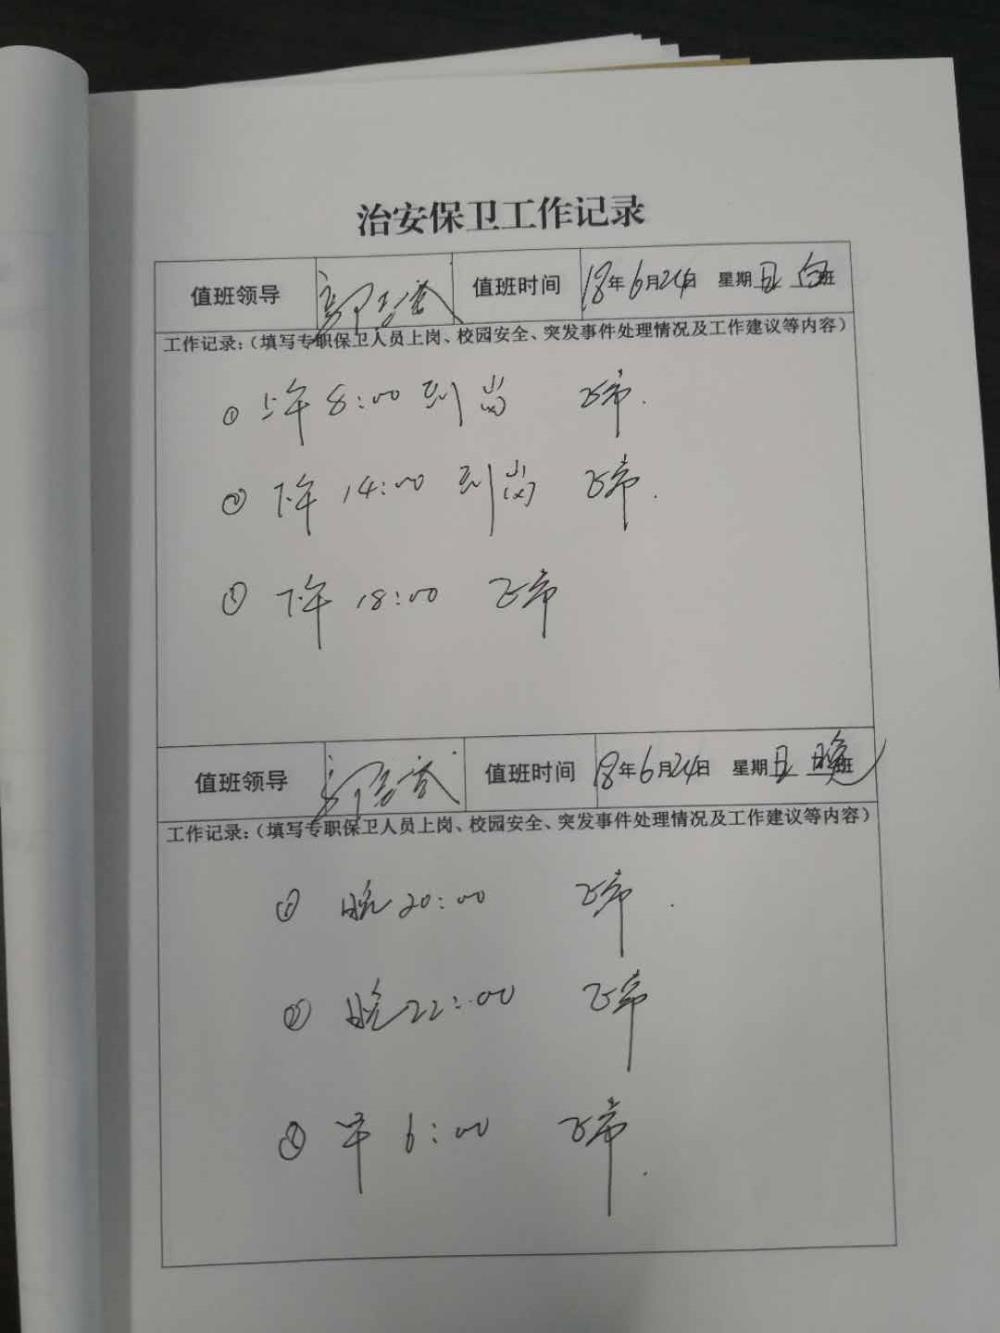 治安保卫工作记录
值班领导 值班时间 18年6月24日 星期日 白班
工作记录:(填写专职保卫人员上岗、校园安全、突发事件处理情况及工作建议等内容)
① 上午8:00到岗 正常.
② 下午14:00到岗 正常.
③ 下午18:00 正常
值班领导 值班时间 18年6月24日 星期日 晚班
工作记录:(填写专职保卫人员上岗、校园安全、突发事件处理情况及工作建议等内容)
① 晚20:00 正常.
② 晚22:00 正常
③ 早6:00 正常.